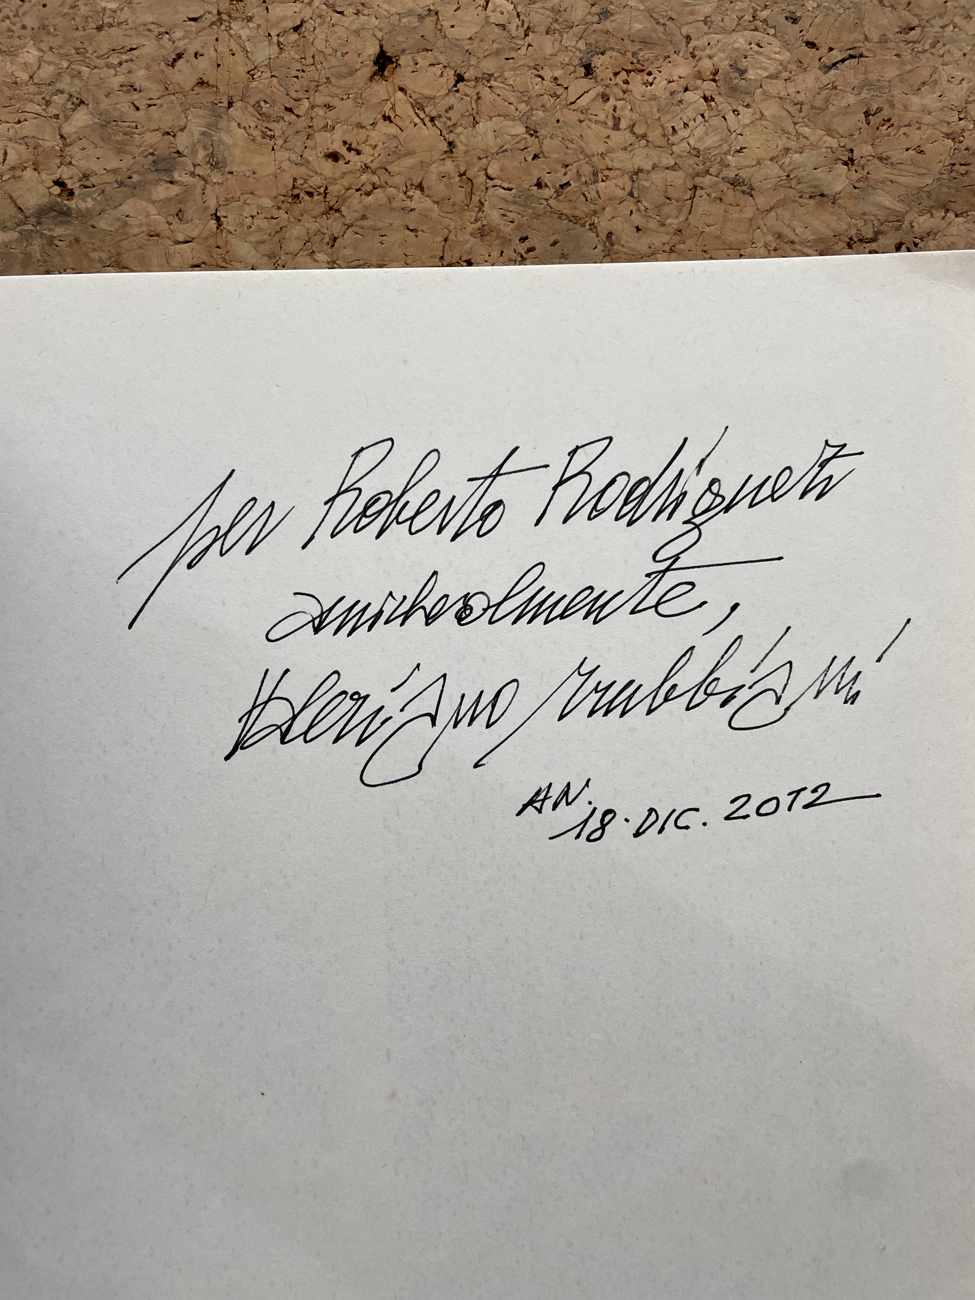 per Roberto Rodríguez
amichevolmente,
Valeriano Trubbiani
AN.
18. DIC. 2012